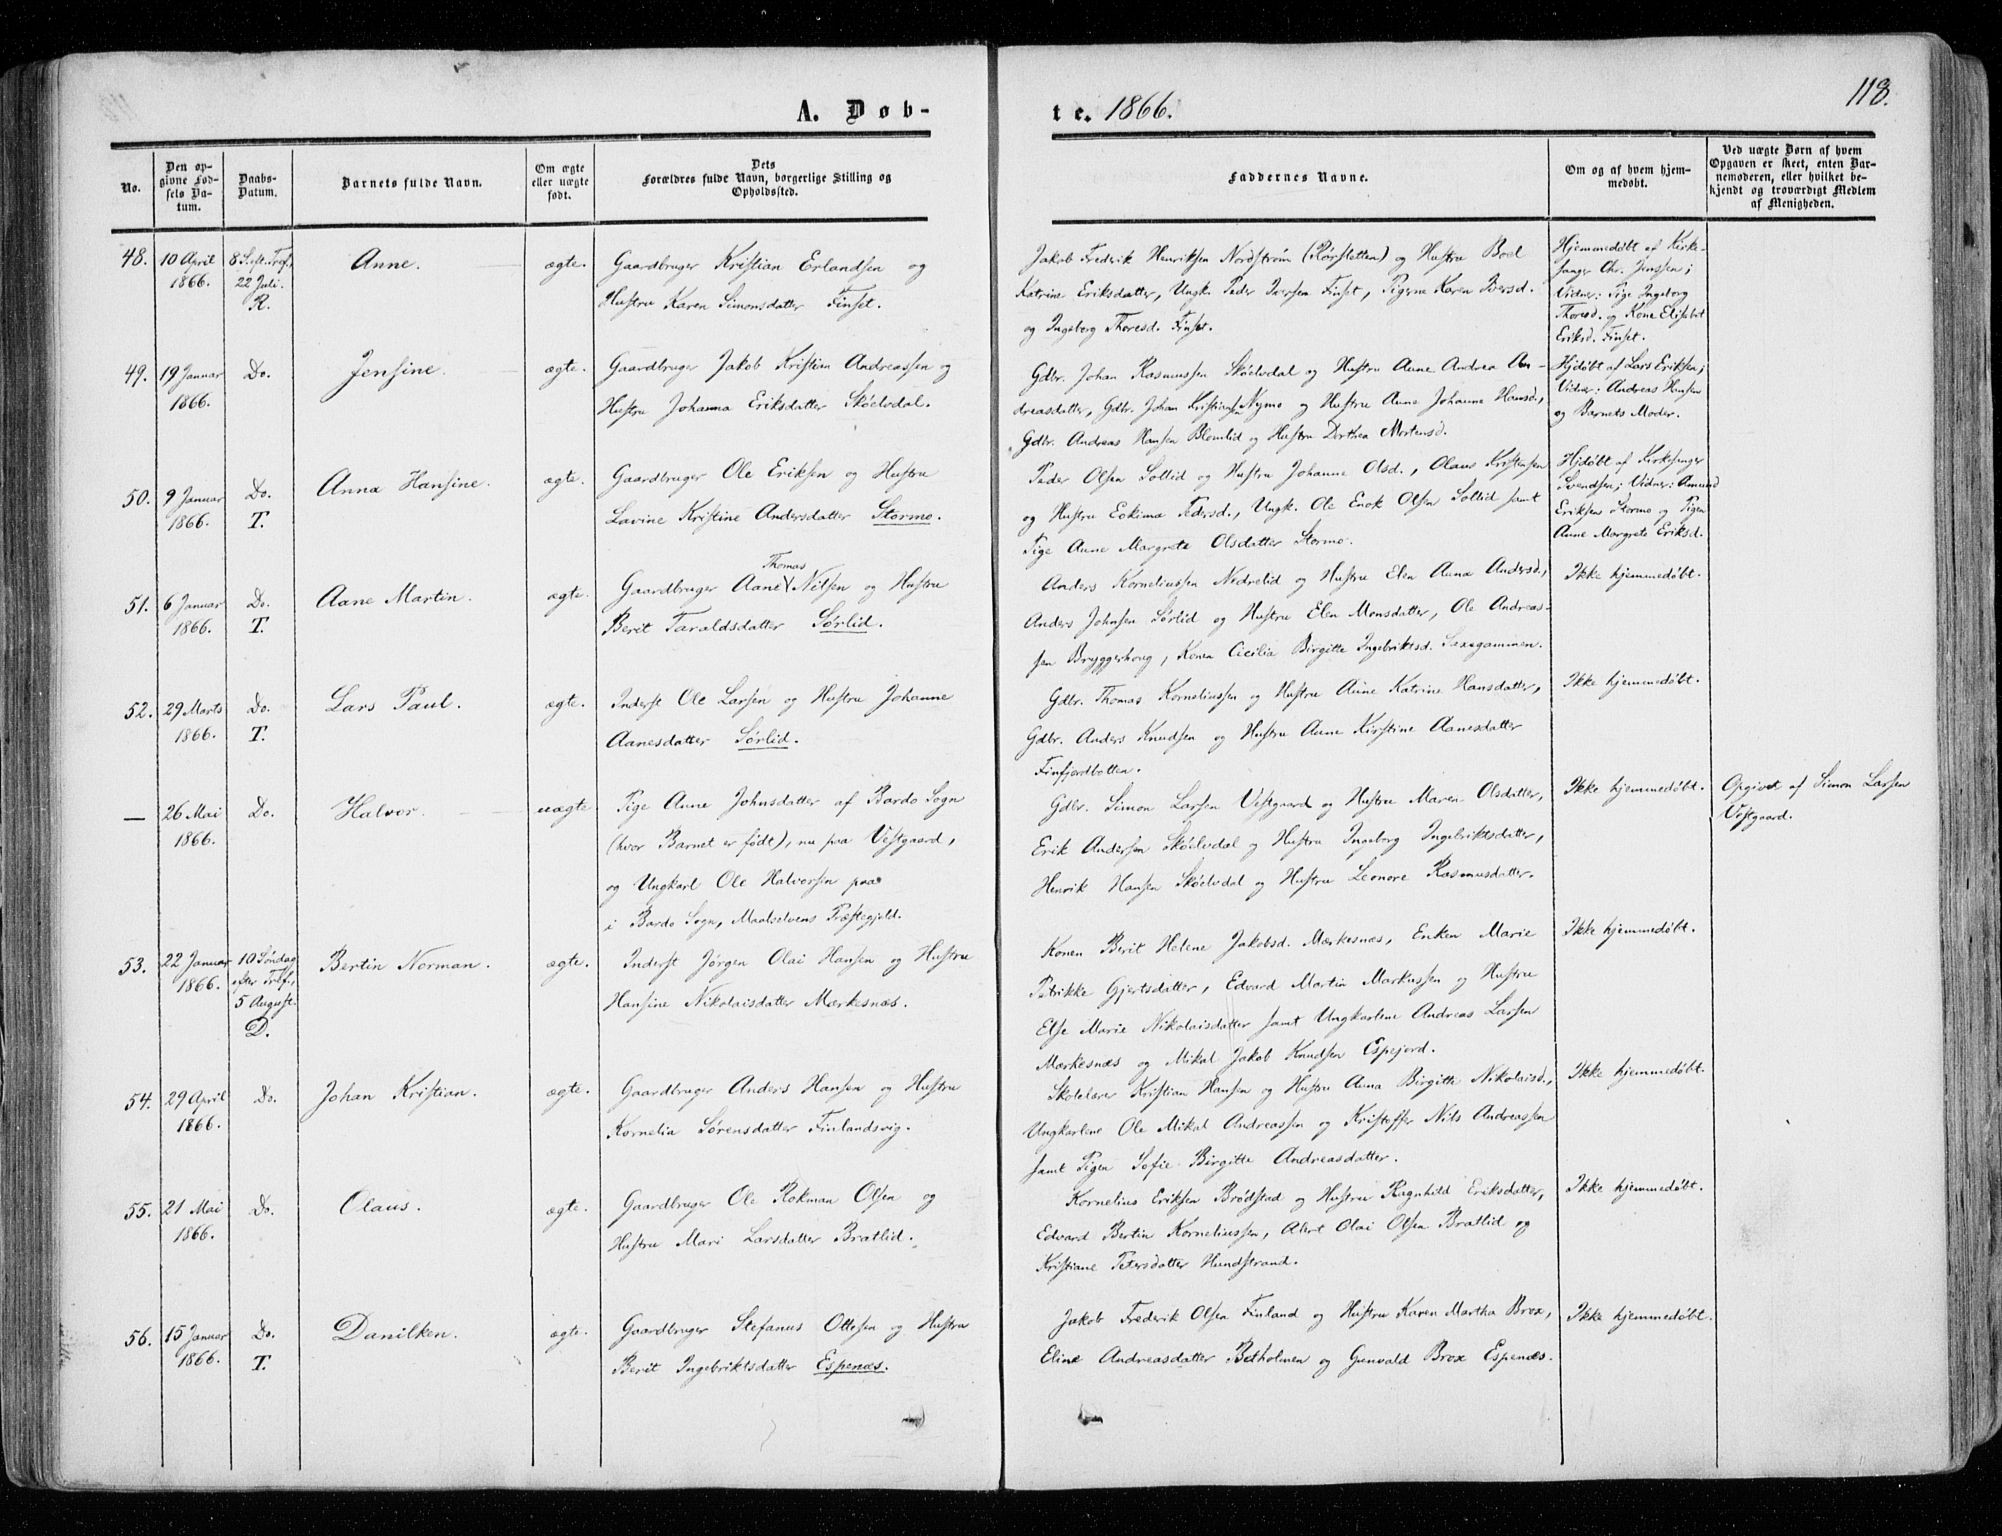 118.
A. Døb-
te. 1866.
No.
Den op-
givne Fød-
sels Da-
tum.
Daabs-
Datum.
Barnets fulde Navn.
Om ægte
eller uægte
født.
Dets
Forældres fulde Navn, borgerlige Stilling og
Opholdssted.
Faddernes Navne.
Om og af hvem hjem-
medøbt.
Ved uægte Børn af hvem
Opgaven er skeet, enten Bar-
nemoderen, eller hvilket be-
kjendt og troværdigt Medlem
af Menigheden.
48.
10 April
1866.
8 S. eft. Tref.
22 Juli.
R.
Anne.
ægte.
Gaardbruger Kristian Erlandsen og
Hustru Karen Simonsdatter Finset.
Jakob Frederik Henriksen Nordstrøm (Rørsletten) og Hustru Boel
Katrine Eriksdatter, Ungk. Peder Iversen Finset, Pigerne Karen Iversd.
og Ingeborg Thoresd. Finset.
Hjemmedøbt af Kirke-
sanger Chr. Jenssen;
Vidner: Pige Ingeborg
Thoresd. og Kone Elisabet
Eriksd. Finset.
49.
19 Januar
1866.
Do.
Jensine.
ægte.
Gaardbruger Jakob Kristian Andreassen og
Hustru Johanna Eriksdatter Skøelvdal.
Gdbr. Johan Rasmussen Skøelvdal og Hustru Anne Andrea An-
dreasdatter, Gdbr. Johan Kristiansen Nymo og Hustru Anne Johanne Hansd.,
Gdbr. Andreas Hansen Blomlid og Hustru Dorthea Mortensd.
Hjdøbt af Lars Eriksen;
Vidner: Andreas Hansen
og Barnets Moder.
50.
9 Januar
1866.
Do.
T.
Anna Hansine.
ægte.
Gaardbruger Ole Eriksen og Hustru
Lavine Kristine Andersdatter Stormo.
Peder Olsen Sollid og Hustru Johanne Olsd., Olaus Kristensen
og Hustru Eokima Pedersd., Ungk. Ole Enok Olsen Sollid samt
Pige Anne Margrete Olsdatter Stormo.
Hjdøbt af Kirkesanger
Svendsen; Vidner: Amund
Eriksen Stormo og Pigen
Anne Margrete Eriksd.
51.
6 Januar
1866.
Do.
T.
Aane Martin.
ægte.
Thomas
Gaardbruger Aane Nilsen og Hustru
Berit Taraldsdatter Sørlid.
Anders Korneliussen Nedrelid og Hustru Elen Anna Andersd.,
Anders Johnsen Sørlid og Hustru Elen Monsdatter, Ole Andreas-
sen Bryggerhoug, Konen Cicilia Birgitte Ingebriktsd. Saxegammen.
Ikke hjemmedøbt.
52.
29 Marts
1866.
Do.
T.
Lars Paul.
ægte.
Inderst Ole Larsen og Hustru Johanne
Aanesdatter Sørlid.
Gdbr. Thomas Korneliussen og Hustru Anne Katrine Hansdatter,
Gdbr. Anders Knudsen og Hustru Anne Kirstine Aanesdatter
Finfjordbotten.
Ikke hjemmedøbt.
—
26 Mai
1866.
Do.
Halvor.
uægte
Pige Anne Johnsdatter af Bardo Sogn
(hvor Barnet er født), nu paa Vestgaard,
og Ungkarl Ole Halvorsen paa
i Bardo Sogn, Maalselvens Præstegjeld.
Gdbr. Simon Larsen Vestgaard og Hustru Maren Olsdatter,
Erik Andersen Skøelvdal og Hustru Ingeborg Ingebriktsdatter,
Henrik Hansen Skøelvdal og Hustru Leonore Rasmusdatter.
Ikke hjemmedøbt.
Opgivet af Simon Larsen
Vestgaard.
53.
22 Januar
1866.
10 Søndag
efter Tref.,
5 August.
D.
Bertin Norman.
ægte.
Inderst Jørgen Olai Hansen og Hustru
Hansine Nikolaisdatter Mærkesnæs.
Konen Berit Helene Jakobsd. Mærkesnæs, Enken Marie
Petrikke Gjertsdatter, Edvard Martin Markussen og Hustru
Else Marie Nikolaisdatter samt Ungkarlene Andreas Larsen
Mærkesnæs og Mikal Jakob Knudsen Espejord.
Ikke hjemmedøbt.
54.
29 April
1866.
Do.
Johan Kristian.
ægte.
Gaardbruger Anders Hansen og Hustru
Kornelia Sørensdatter Finlandsvig.
Skolelærer Kristian Hansen og Hustru Anna Birgitte Nikolaisd.,
Ungkarlene Ole Mikal Andreassen og Kristoffer Nils Andreassen
samt Pigen Sofie Birgitte Andreasdatter.
Ikke hjemmedøbt.
55.
21 Mai
1866.
Do.
Olaus.
ægte.
Gaardbruger Ole Rokman Olsen og
Hustru Mari Larsdatter Bratlid.
Kornelius Eriksen Brødstad og Hustru Ragnhild Eriksdatter,
Edvard Bertin Korneliussen, Alert Olai Olsen Bratlid og
Kristiane Petersdatter Hundstrand.
Ikke hjemmedøbt.
56.
15 Januar
1866.
Do.
T.
Danilken.
ægte.
Gaardbruger Stefanus Ottesen og Hustru
Berit Ingebriktsdatter Espenæs.
Jakob Frederik Olsen Finland og Hustru Karen Martha Brox,
Eline Andreasdatter Botholmen og Gunvald Brox Espenæs.
Ikke hjemmedøbt.